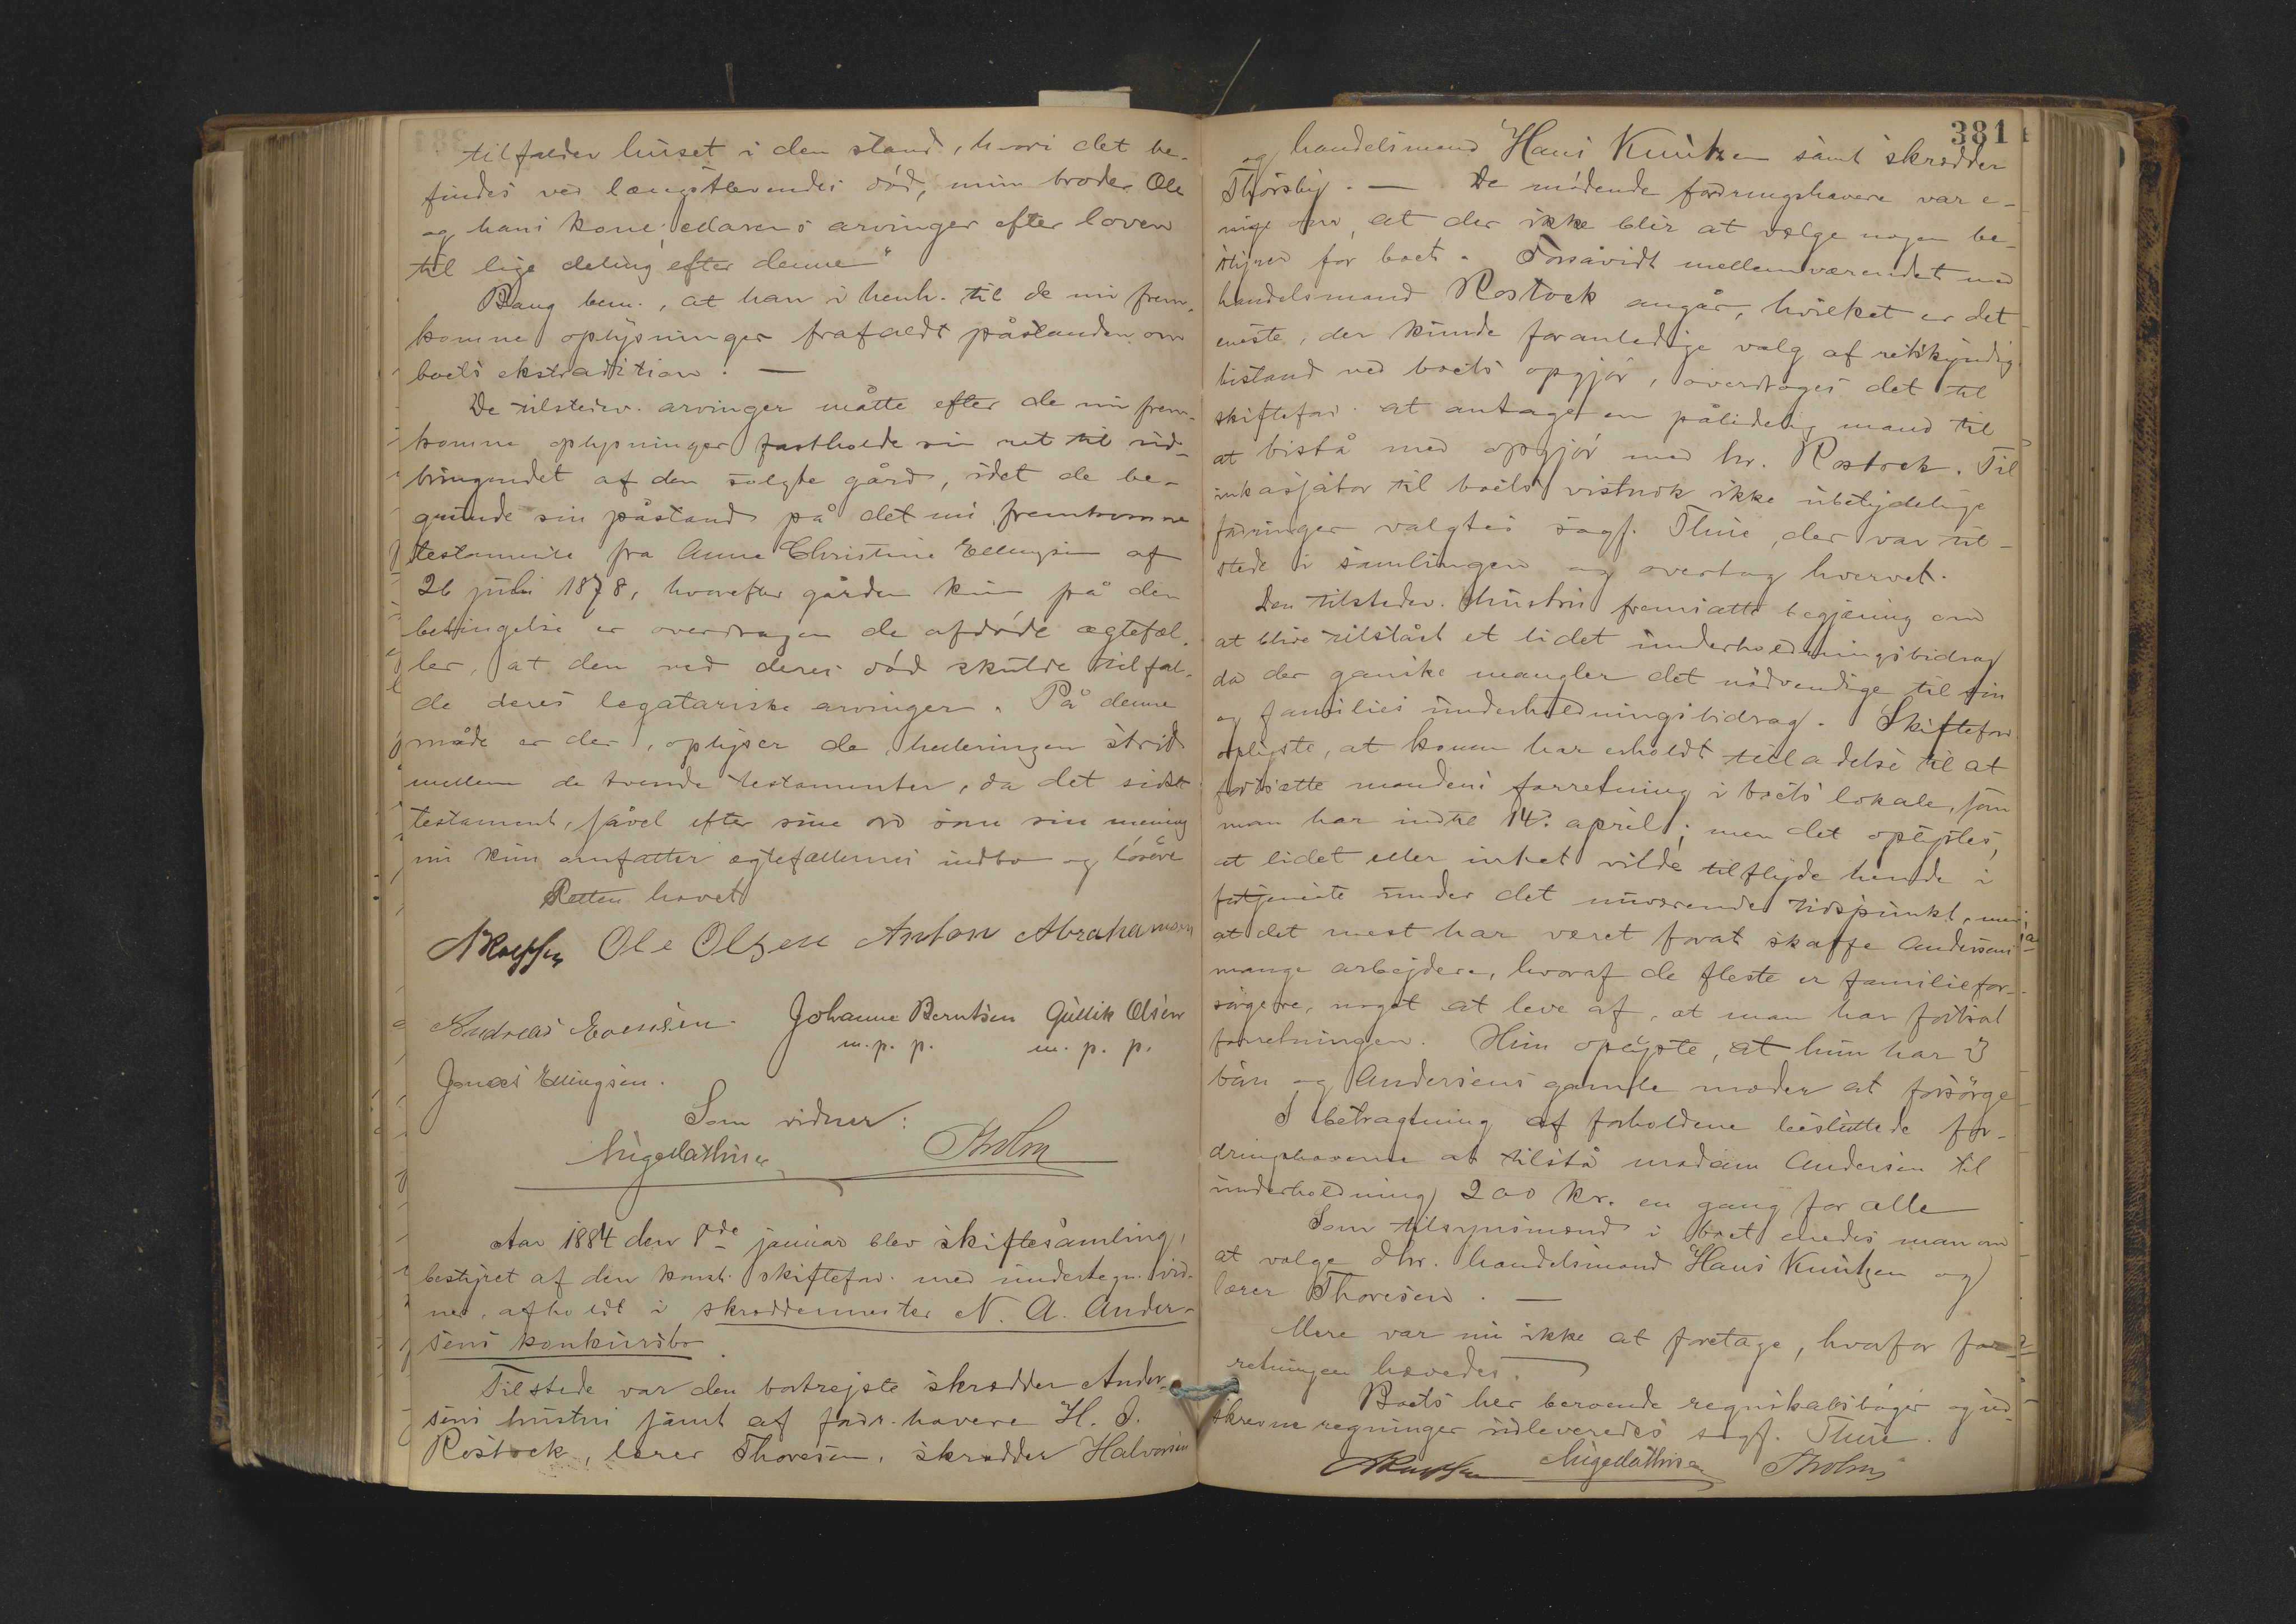 tilfalder huset i den stand, hvori det be-
findes ved længstlevendes död, min broder Ole
og hans kone; ellars arvinger efter loven
til lige deling efter denne"
Bang bem., at han i henh. til de nu frem-
komne oplysninger frafaldt påstanden om
boets ekstradition. —
De tilstedev. arvinger måtte efter de nu frem-
komne oplysninger fastholde sin ret til ud-
bringendet af den solgte gård, idet de be-
grunde sin påstand på det nu fremkomne
testamente fra Anne Christine Ellingsen af
26 juli 1878, hvorefter gården kun på den
betingelse er overdragen de afdöde ægtefæl-
ler, at den ved deres död skulde tilfal-
de deres legatariske arvinger. På denne
måde er der, oplyser de, ingen strid
mellem de tvende testamenter, da det sidste
testament, såvel efter sine ord som sin mening
nu kun omfatter ægtefællernes indbo og lösöre
Retten hævet
Ole Olsen Anton Abrahamsen
Andreas Evensen. Johanne Berntsen Gullik Olsen
m. p. p. m. p. p.
Jonas Ellingsen.
Som vidner:
Holm
Aar 1884 den 8de januar blev skiftesamling,
bestyret af den konst. skifteforv. med undertegn. vid-
ner, afholdt i skræddermester N. A. Ander-
sens konkursbo.
Tilstede var den bortrejste skrædder Ander-
sens hustru samt af fordr. havere H. J.
Rostock, lærer Thoresen, skrædder Halvorsen
381
og handelsmand Hans Knutzen samt skrædder
Thorsby. — De mödende fordringshavere var e-
nige om, at der ikke blir at vælge nogen be-
styrer for boet. Forsåvidt mellemværendet med
handelsmand Rostock angår, hvilket er det
eneste, der kunde foranledige valg af retskyndig
bistand ved boets opgjör, overdroges det til
skifteforv. at antage en pålidelig mand til
at bistå med opgjör med hr. Rostock. Til
inkasjator til boets vistnok ikke ubetydelige
fordringer valgtes sagf. Thue, der var til-
stede i samlingen og overtog hvervet.
Den tilstedev. hustru fremsatte begjæring om
at blive tilstået et lidet underholdningsbidrag
da der ganske mangler det nödvendige til sin
og families underholdningsbidrag. Skifteforv.
oplyste, at konen har erholdt tilladelse til at
fortsætte mandens forretning i boets lokale, som
man har indtil 14. april; men det oplystes,
at lidet eller intet vilde tilflyde hende i
fortjeneste under det nuværende tidspunkt, men
at det mest har været forat skaffe Andersens
mange arbejdere, hvoraf de fleste er familiefor-
sörgere, noget at leve af, at man har fortsat
forretningen. Hun oplyste, at hun har 3
börn og Andersens gamle moder at forsörge
I betragtning af forholdene besluttede for-
dringshaverne at tilstå madam Andersen til
underholdning 200 kr. en gang for alle
Som tilsynsmænd i boet enedes man om
at vælge dhr. handelsmand Hans Knutzen og
lærer Thoresen. —
Mere var nu ikke at foretage, hvorfor for-
retningen hævedes.
Boets her beroende regnskabsböger og ud-
skrevne regninger udleveredes sagf. Thue.
Holm